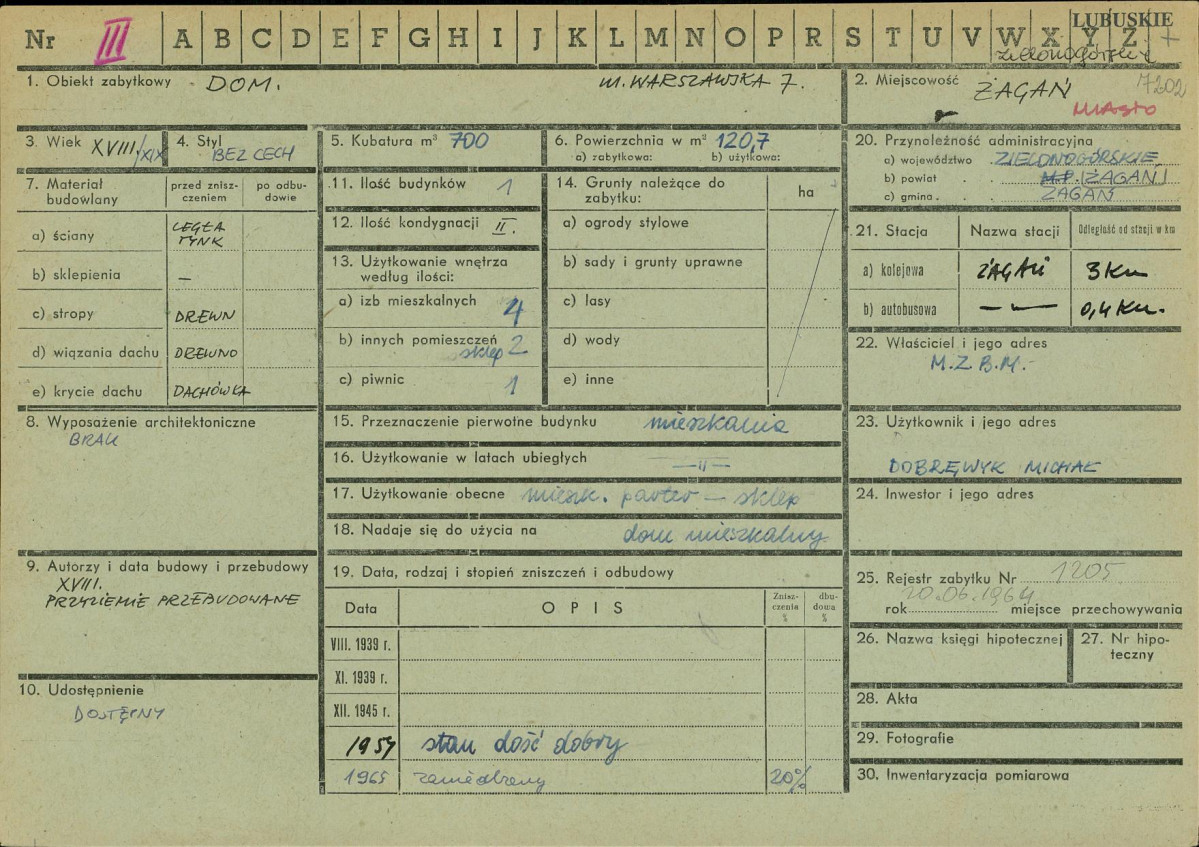 LUBUSKIE
Nr III A B C D E F G H I J K L M N O P R S T U V W X Y Z
zielonogórskie
1. Obiekt zabytkowy DOM. ul. WARSZAWSKA 7.
2. Miejscowość ŻAGAŃ 7202
MIASTO
3. Wiek XVIII/XIX
4. Styl BEZ CECH
5. Kubatura m³ 700
6. Powierzchnia w m² 120,7
a) zabytkowa: b) użytkowa:
7. Materiał budowlany
przed zniszczeniem
po odbudowie
a) ściany CEGŁA TYNK
b) sklepienia —
c) stropy DREWN
d) wiązania dachu DREWNO
e) krycie dachu DACHÓWKA
8. Wyposażenie architektoniczne
BRAK
9. Autorzy i data budowy i przebudowy
XVIII.
PRZYZIEMIE PRZEBUDOWANE
10. Udostępnienie
DOSTĘPNY
11. Ilość budynków 1
12. Ilość kondygnacji II.
13. Użytkowanie wnętrza
według ilości:
a) izb mieszkalnych 4
b) innych pomieszczeń
sklep 2
c) piwnic 1
14. Grunty należące do
zabytku:
ha
a) ogrody stylowe
b) sady i grunty uprawne
c) lasy
d) wody
e) inne
15. Przeznaczenie pierwotne budynku mieszkalna
16. Użytkowanie w latach ubiegłych —"—
17. Użytkowanie obecne mieszk. parter — sklep
18. Nadaje się do użycia na dom mieszkalny
19. Data, rodzaj i stopień zniszczeń i odbudowy
Data OPIS Zniszczenia % dbudowa %
VIII. 1939 r.
XI. 1939 r.
XII. 1945 r.
1959 stan dość dobry
1965 zaniedbany 20%
20. Przynoleżność administracyjna
a) województwo ZIELONOGÓRSKIE
b) powiat M.P. (ŻAGAŃ)
c) gmina ŻAGAŃ
21. Stacja Nazwa stacji Odległość od stacji w km
a) kolejowa ŻAGAŃ 3 Km
b) autobusowa —"— 0,4 Km.
22. Właściciel i jego adres
M.Z.B.M.
23. Użytkownik i jego adres
DOBRĘWYK MICHAŁ
24. Inwestor i jego adres
25. Rejestr zabytku Nr 1205
20.06.1964
rok miejsce przechowywania
26. Nazwa księgi hipotecznej
27. Nr hipoteczny
28. Akta
29. Fotografie
30. Inwentaryzacja pomiarowa